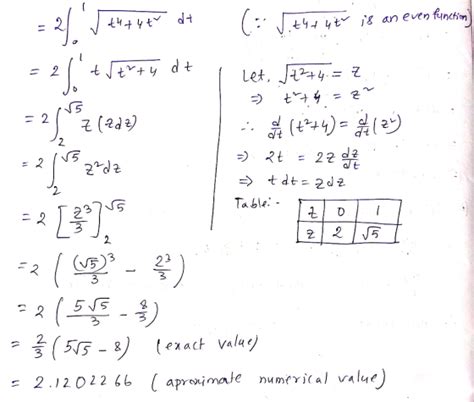 = 2∫₀¹ √(t⁴+4t²) dt (∵ √(t⁴+4t²) is an even function)
= 2∫₀¹ t√(t²+4) dt
= 2∫₂^√5 z(zdz)
= 2∫₂^√5 z²dz
= 2[z³/3]₂^√5
= 2((√5)³/3 - 2³/3)
= 2(5√5/3 - 8/3)
= 2/3(5√5-8) (exact value)
= 2.1202266 (aproximate numerical value)
Let, √(t²+4) = z
⇒ t²+4 = z²
∴ d/dt(t²+4) = d/dt(z²)
⇒ 2t = 2z dz/dt
⇒ tdt = zdz
Table:-
z 0 1
z 2 √5